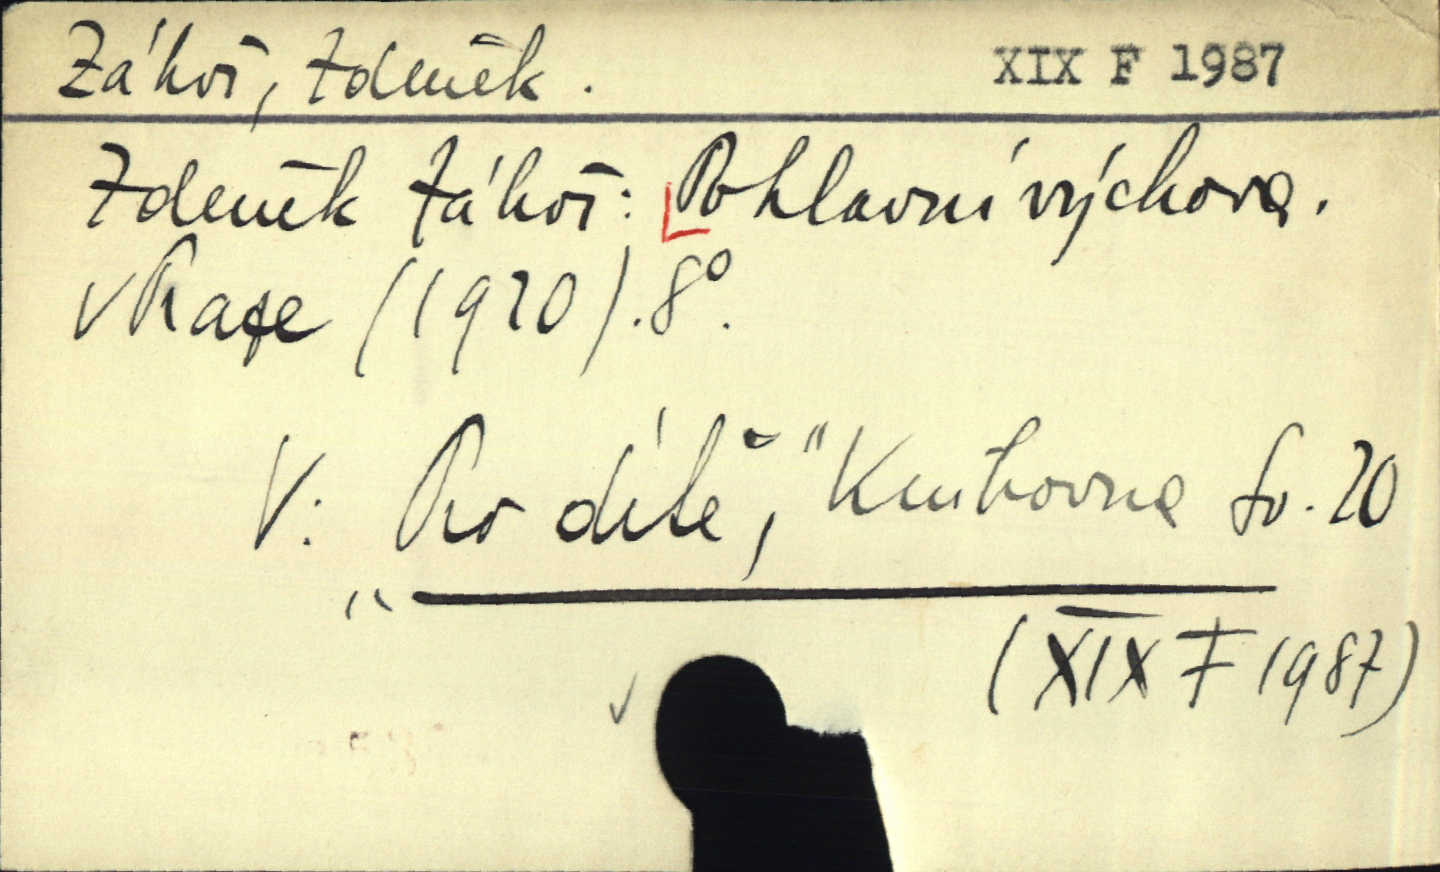 Záhoř, Zdeněk. XIX F 1987
Zdeněk Záhoř: Pohlavní výchova.
V Praze (1920). 8°.
V: „Pro dítě," Knihovna sv. 20
(XIX F 1987)